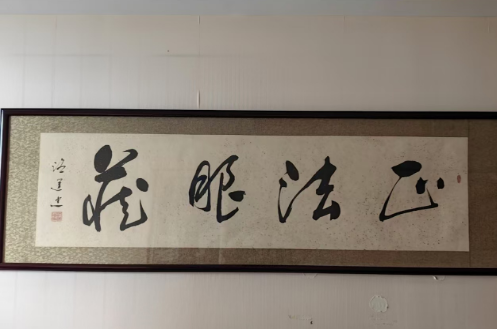 正法眼藏